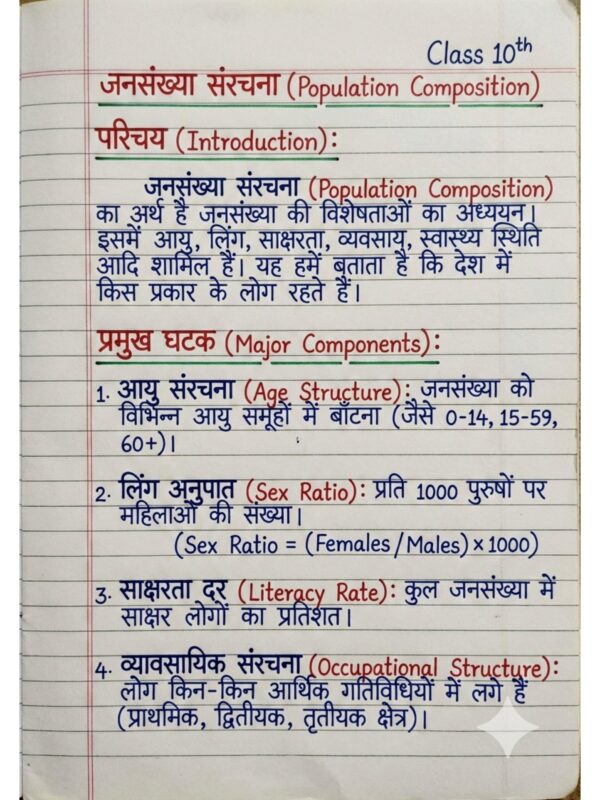 Class 10th
जनसंख्या संरचना (Population Composition)
परिचय (Introduction):
जनसंख्या संरचना (Population Composition)
का अर्थ है जनसंख्या की विशेषताओं का अध्ययन।
इसमें आयु, लिंग, साक्षरता, व्यवसाय, स्वास्थ्य स्थिति
आदि शामिल हैं। यह हमें बताता है कि देश में
किस प्रकार के लोग रहते हैं।
प्रमुख घटक (Major Components):
1. आयु संरचना (Age Structure): जनसंख्या को
विभिन्न आयु समूहों में बाँटना (जैसे 0-14, 15-59,
60+)।
2. लिंग अनुपात (Sex Ratio): प्रति 1000 पुरुषों पर
महिलाओं की संख्या।
(Sex Ratio = (Females/Males) × 1000)
3. साक्षरता दर (Literacy Rate): कुल जनसंख्या में
साक्षर लोगों का प्रतिशत।
4. व्यावसायिक संरचना (Occupational Structure):
लोग किन-किन आर्थिक गतिविधियों में लगे हैं
(प्राथमिक, द्वितीयक, तृतीयक क्षेत्र)।